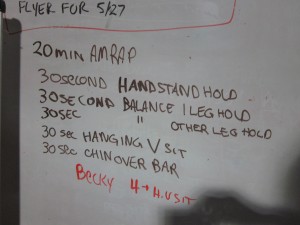 FLYER FOR 5/27
20 min AMRAP
30 SECOND HANDSTAND HOLD
30 SECOND BALANCE 1 LEG HOLD
30 SEC " OTHER LEG HOLD
30 sec HANGING V SIT
30 sec CHIN OVER BAR
Becky 4 → H. V SIT